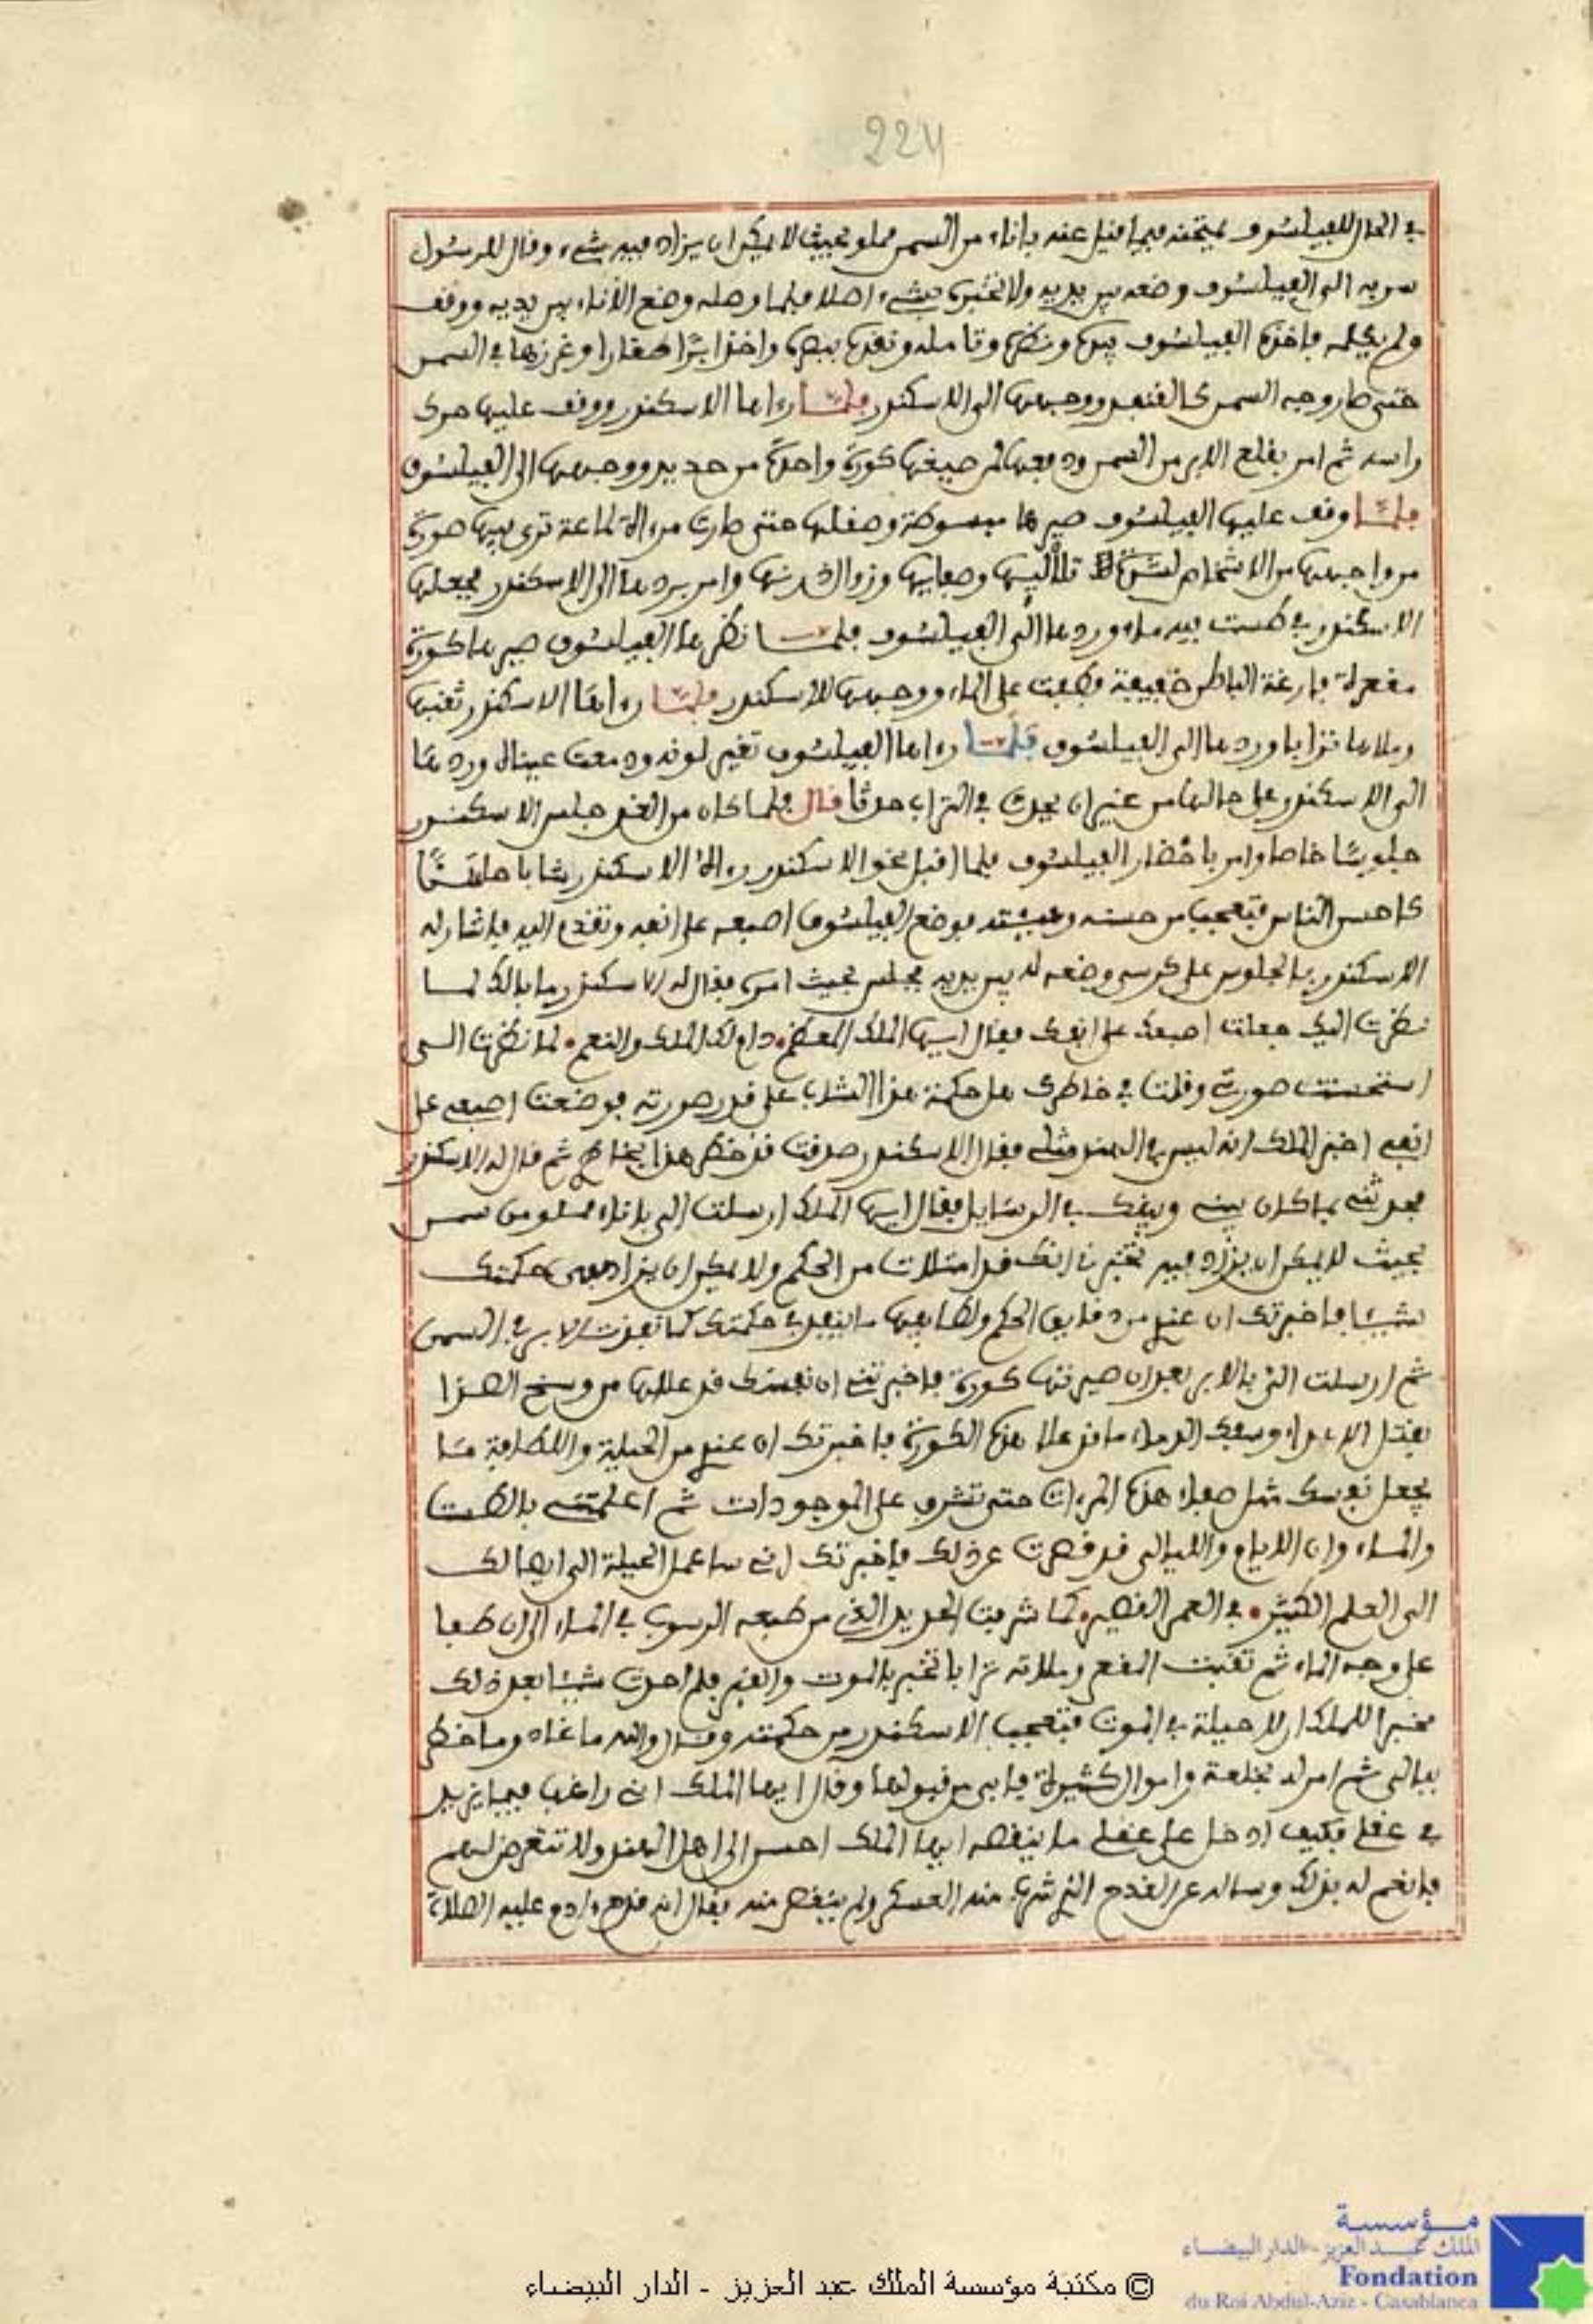 224
في الحال للفيلسوف يمتحنه فيما قيل عنه باناء من السمن مملو بحيث لا يمكن ان يزاد فيه شيء وقال للرسول
سر به الى الفيلسوف وضعه بين يديه ولا تخبره بشيء اصلا فلما وصله وضع الاناء بين يديه ووقف
ولم يكلمه فاخذه الفيلسوف بيده ونظره وتامله ونقده ببصره واخذ ابرا صغارا وغرزها في السمن
حتى صار وجه السمن كالقنفد ووجهها الى الاسكندر فلما رءاها الاسكندر ووقف عليها حرك
راسه ثم امر بقلع الابر من السمن ودفعها لمن صيغها كورة واحدة من حديد ووجهها الى الفيلسوف
فلما وقف عليها الفيلسوف صيرها مبسوطة وصقلها حتى صارت مرءاة لماعة ترى فيها صورة
من واجهها من الاشخاص لشدة تلاليها وصفايها وزوال درنها وامر بردها الى الاسكندر فجعلها
الاسكندر في طست فيه ماء وردها الى الفيلسوف فلما نظرها الفيلسوف صيرها كورة
مقعرة فارغة الباطن خفيفة فطفت على الماء ووجهها للاسكندر فلما رءاها الاسكندر ثقبها
وملاها ترابا وردها الى الفيلسوف فلما رءاها الفيلسوف تغير لونه ودمعت عيناه وردها
الى الاسكندر على حالها من غير ان يحدث في التراب حدثا قال فلما كان من الغد جلس الاسكندر
جلوسا خاصا وامر باحضار الفيلسوف فلما اقبل نحو الاسكندر رءاه الاسكندر شابا حسنا
كاحسن الناس فتعجب من حسنه وهيئته فوضع الفيلسوف اصبعه على انفه وتقدم اليه فاشار له
الاسكندر بالجلوس على كرسي وضعه له بين يديه فجلس بحيث امره فقال له الاسكندر ما بالك لما
نظرت اليك جعلت اصبعك على انفك فقال ايها الملك المعظم دام لك الملك والنعم لما نظرت الي
استحسنت صورتي وقلت في خاطرك هل حكمة هذا الشاب على قدر صورته فوضعت اصبعي على
انفي اخبر الملك انه ليس في الهند مثلي فقال الاسكندر صدقت قد خطر هذا بخاطري ثم قال له الاسكندر
فحدثني بما كان بيني وبينك في الرسايل فقال ايها الملك ارسلت الي باناء مملو من سمن
بحيث لا يمكن ان يزاد فيه تخبرنا انك قد امتلات من الحكم ولا يمكن ان يزاد على حكمتك
شيئا فاخبرتك ان عندي من دقايق الحكم ولطايفها ما ينفذ في حكمتك كما نفذت الابر في السمن
ثم ارسلت الي بالابر بعد ان صيرتها كورة فاخبرتني ان نفسك قد علاها من وسخ الصدا
بقتل الاعداء وسفك الدماء ما قد علا هذه الكورة فاخبرتك ان عندي من الحيلة واللطافة ما
يجعل نفسك مثل صفاء هذه المرءات حتى تشرف على الموجودات ثم اعلمتني بالطست
والماء وان الايام والليالي قد قصرت عن ذلك فاخبرتك اني ساعمل الحيلة الى ايصالك
الى العلم الكثير في العمر القصير كما شرفت الحديد الذي من طبعه الرسوب في الماء الى ان طفا
على وجه الماء ثم ثقبت المقعر وملاته ترابا تخبر بالموت والقبر فلم احدث شيئا بعد ذلك
مخبرا للملك ان لا حيلة في الموت فتعجب الاسكندر من حكمته وقال والله ما عداه وما خطر
ببالي ثم امر له بخلعة واموال كثيرة فابى من قبولها وقال ايها الملك اني راغب فيما يزيد
في عقلي فكيف ادخل على عقلي ما ينقصه ايها الملك احسن الى اهل الهند ولا تتعرض لهم
فانعم له بذلك وساله عن القدح الذي شرب منه العسكر ولم ينقص منه فقال انه قدح ءادم عليه الصلاة
مؤسسة
الملك عبد العزيز - الدار البيضاء
Fondation
du Roi Abdul-Aziz - Casablanca
© مكتبة مؤسسة الملك عبد العزيز - الدار البيضاء